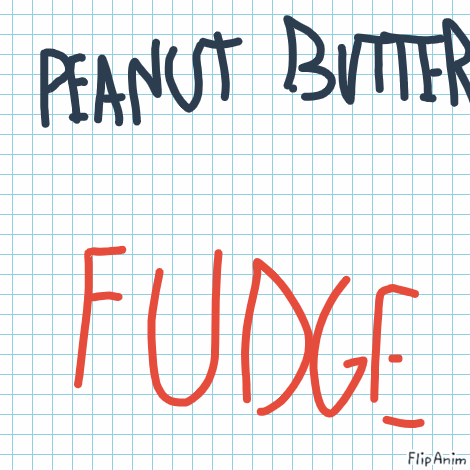 PEANUT BUTTER
FUDGE
FlipAnim